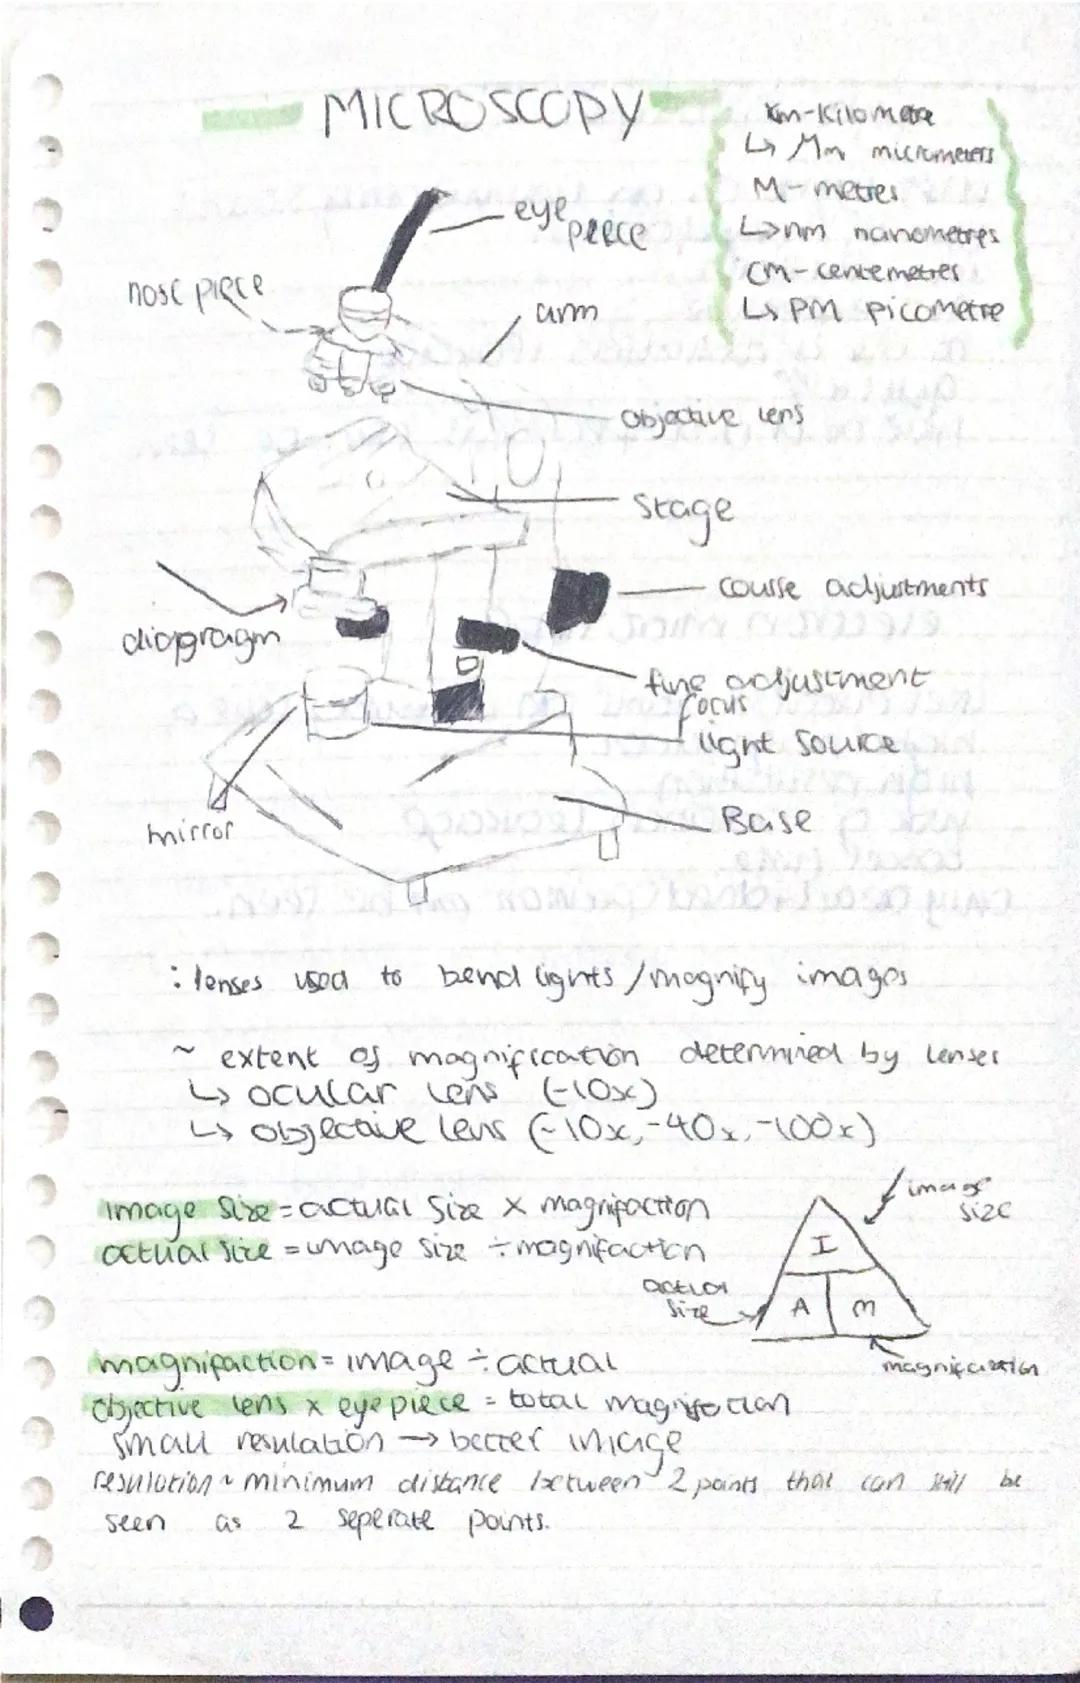 MICROSCOPY
Km-Kilometre
↳ Mm micrometers
M - metres
↳nm nanometres
CM - centemetres
↳ PM picometre
eye peece
nose piece
arm
objective lens
Stage
course adjustments
diapragm
fine adjustment
focus
light source
mirror
Base
: lenses used to bend lights / magnify images
~ extent of magnification determined by lenses
↳ ocular lens (-10x)
↳ objective lens (-10x, -40x, -100x)
image size = actual size x magnifaction
actual size = image size ÷ magnifaction
image size
I
A
m
actual size
magnification
magnifaction = image ÷ actual
objective lens x eyepiece = total magnifaction
small resulation → better image
resulution ~ minimum distance between 2 points that can still be
seen as 2 seperate points.